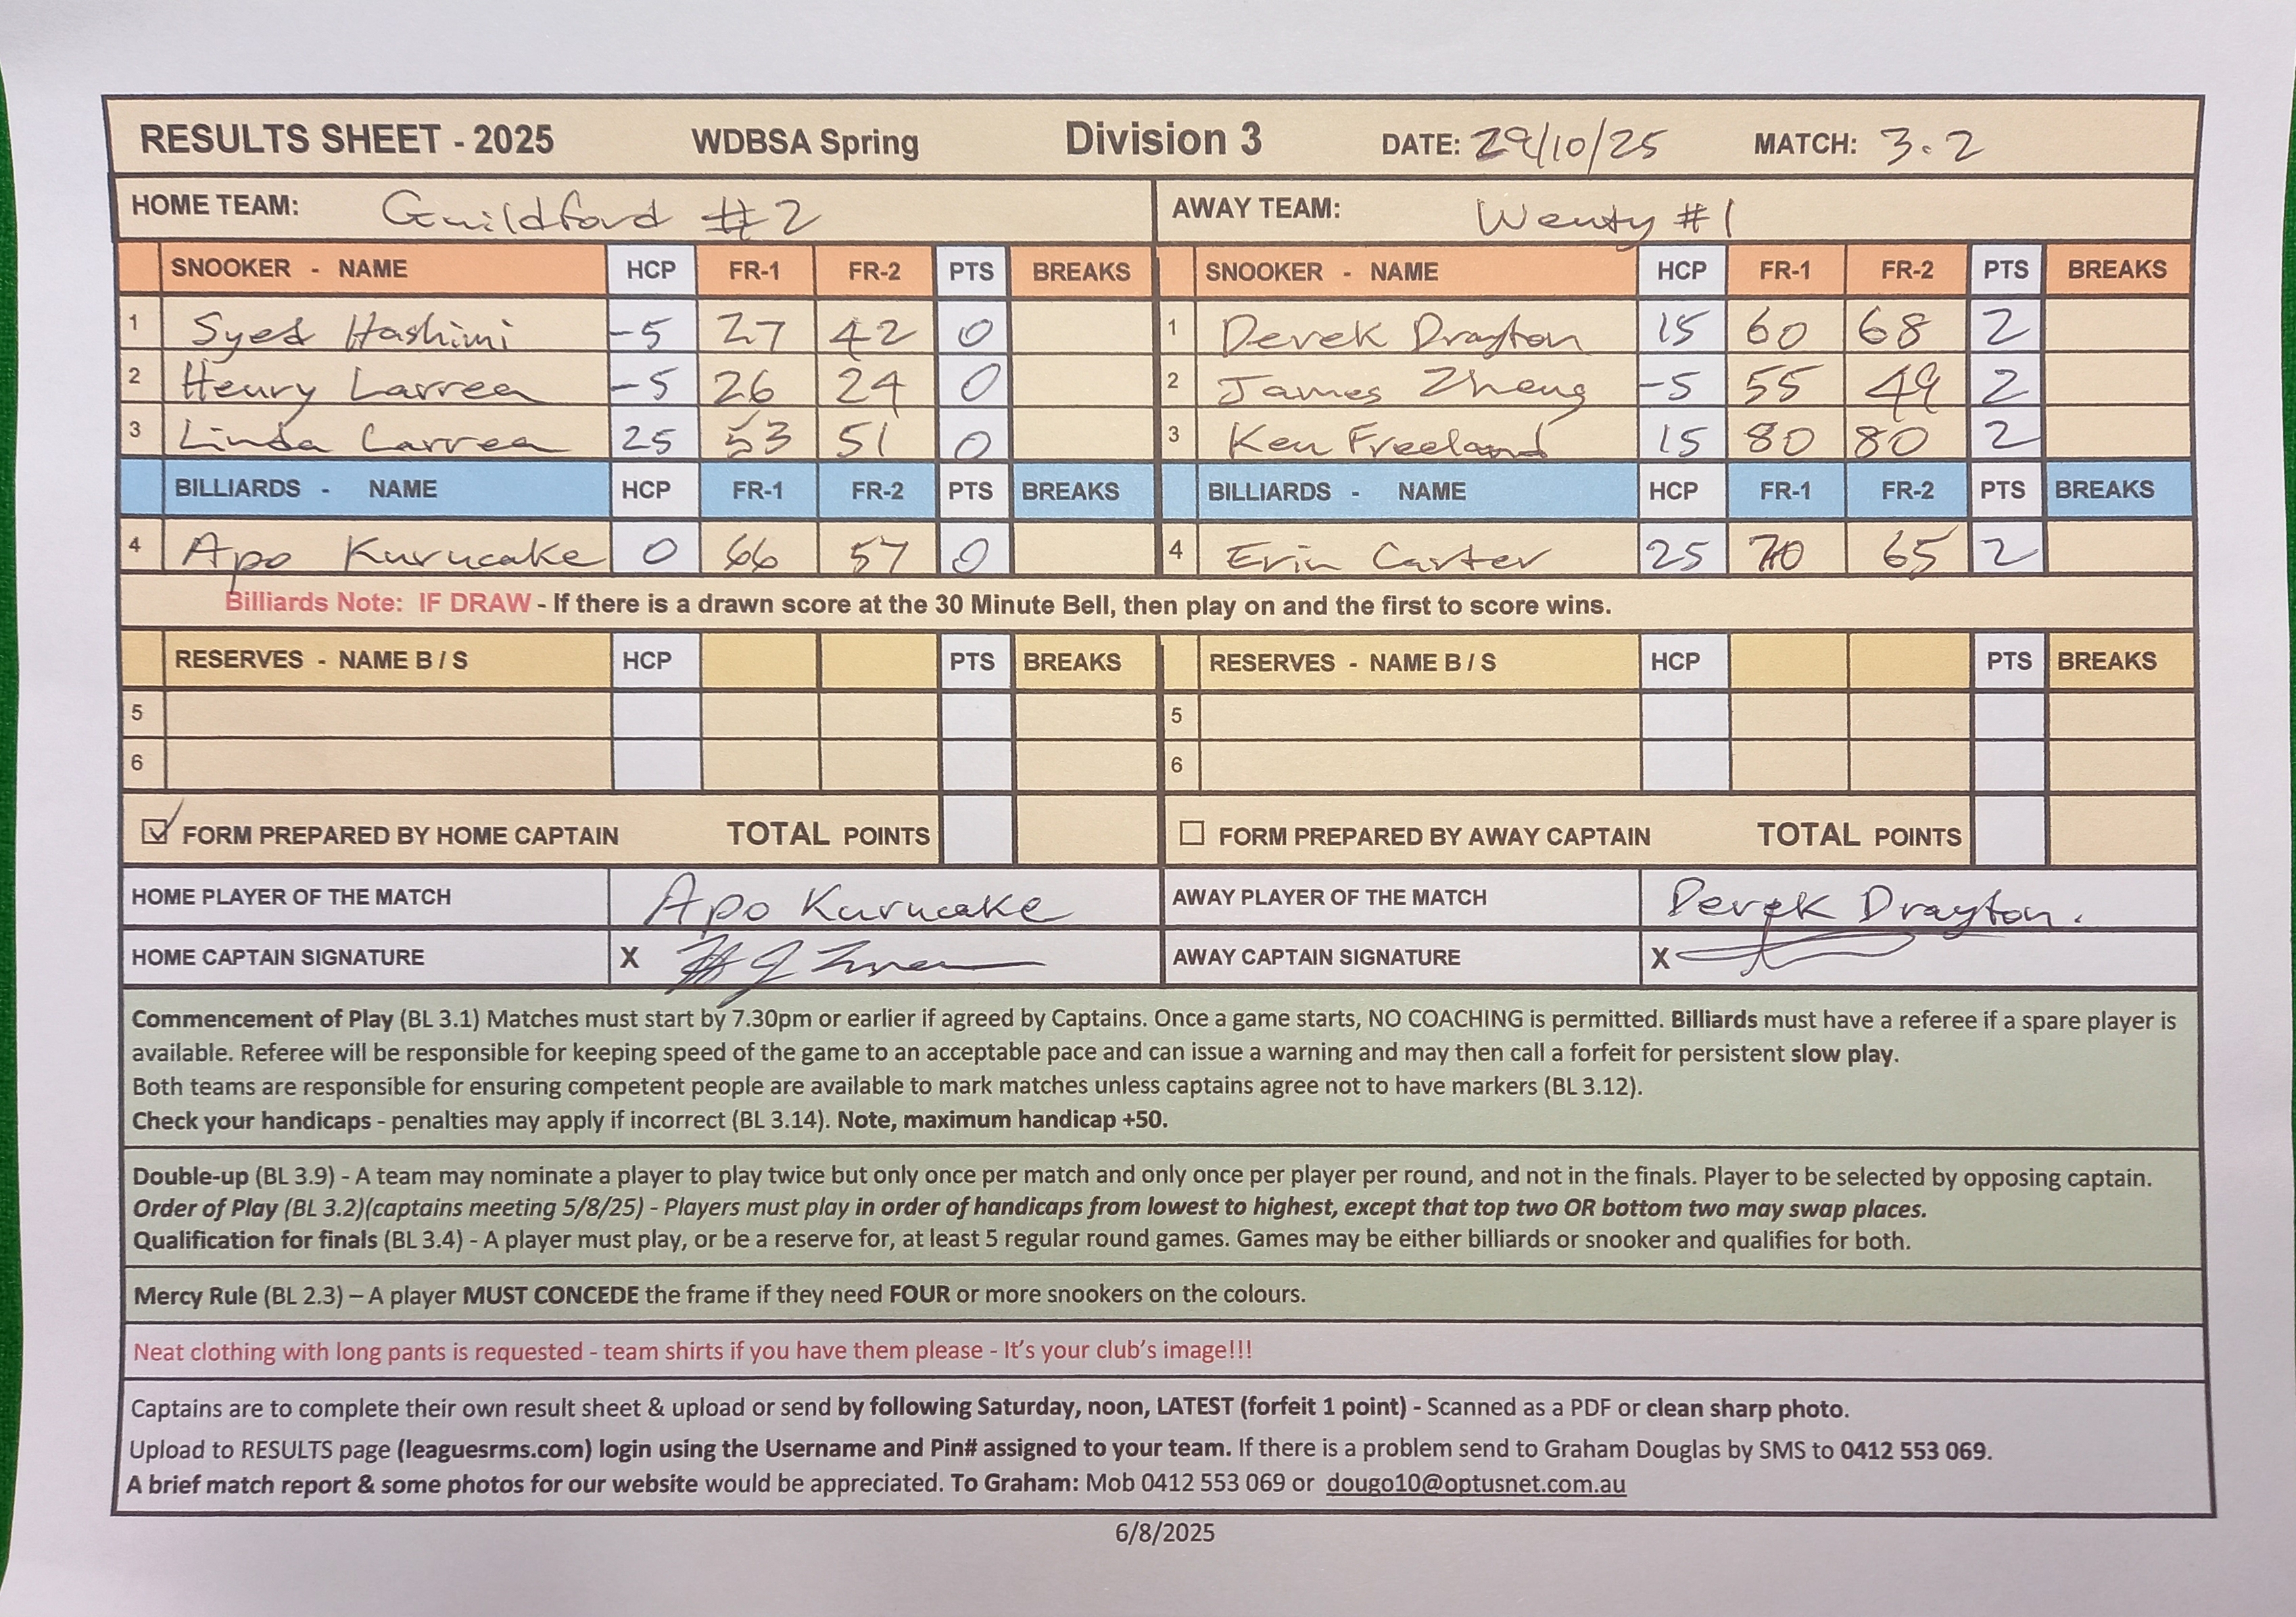 RESULTS SHEET - 2025 WDBSA Spring Division 3 DATE: 29/10/25 MATCH: 3.2
HOME TEAM: Guildford #2 AWAY TEAM: Wenty #1
SNOOKER - NAME HCP FR-1 FR-2 PTS BREAKS SNOOKER - NAME HCP FR-1 FR-2 PTS BREAKS
1 Syed Hashimi -5 27 42 0 1 Derek Drayton 15 60 68 2
2 Henry Larrea -5 26 24 0 2 James Zheng -5 55 49 2
3 Linda Larrea 25 53 51 0 3 Ken Freeland 15 80 80 2
BILLIARDS - NAME HCP FR-1 FR-2 PTS BREAKS BILLIARDS - NAME HCP FR-1 FR-2 PTS BREAKS
4 Apo Kurucake 0 66 57 0 4 Erin Carter 25 70 65 2
Billiards Note: IF DRAW - If there is a drawn score at the 30 Minute Bell, then play on and the first to score wins.
RESERVES - NAME B / S HCP PTS BREAKS RESERVES - NAME B / S HCP PTS BREAKS
5 5
6 6
FORM PREPARED BY HOME CAPTAIN TOTAL POINTS FORM PREPARED BY AWAY CAPTAIN TOTAL POINTS
HOME PLAYER OF THE MATCH Apo Kurucake AWAY PLAYER OF THE MATCH Derek Drayton.
HOME CAPTAIN SIGNATURE X AWAY CAPTAIN SIGNATURE X
Commencement of Play (BL 3.1) Matches must start by 7.30pm or earlier if agreed by Captains. Once a game starts, NO COACHING is permitted. Billiards must have a referee if a spare player is
available. Referee will be responsible for keeping speed of the game to an acceptable pace and can issue a warning and may then call a forfeit for persistent slow play.
Both teams are responsible for ensuring competent people are available to mark matches unless captains agree not to have markers (BL 3.12).
Check your handicaps - penalties may apply if incorrect (BL 3.14). Note, maximum handicap +50.
Double-up (BL 3.9) - A team may nominate a player to play twice but only once per match and only once per player per round, and not in the finals. Player to be selected by opposing captain.
Order of Play (BL 3.2)(captains meeting 5/8/25) - Players must play in order of handicaps from lowest to highest, except that top two OR bottom two may swap places.
Qualification for finals (BL 3.4) - A player must play, or be a reserve for, at least 5 regular round games. Games may be either billiards or snooker and qualifies for both.
Mercy Rule (BL 2.3) – A player MUST CONCEDE the frame if they need FOUR or more snookers on the colours.
Neat clothing with long pants is requested - team shirts if you have them please - It's your club's image!!!
Captains are to complete their own result sheet & upload or send by following Saturday, noon, LATEST (forfeit 1 point) - Scanned as a PDF or clean sharp photo.
Upload to RESULTS page (leaguesrms.com) login using the Username and Pin# assigned to your team. If there is a problem send to Graham Douglas by SMS to 0412 553 069.
A brief match report & some photos for our website would be appreciated. To Graham: Mob 0412 553 069 or dougo10@optusnet.com.au
6/8/2025